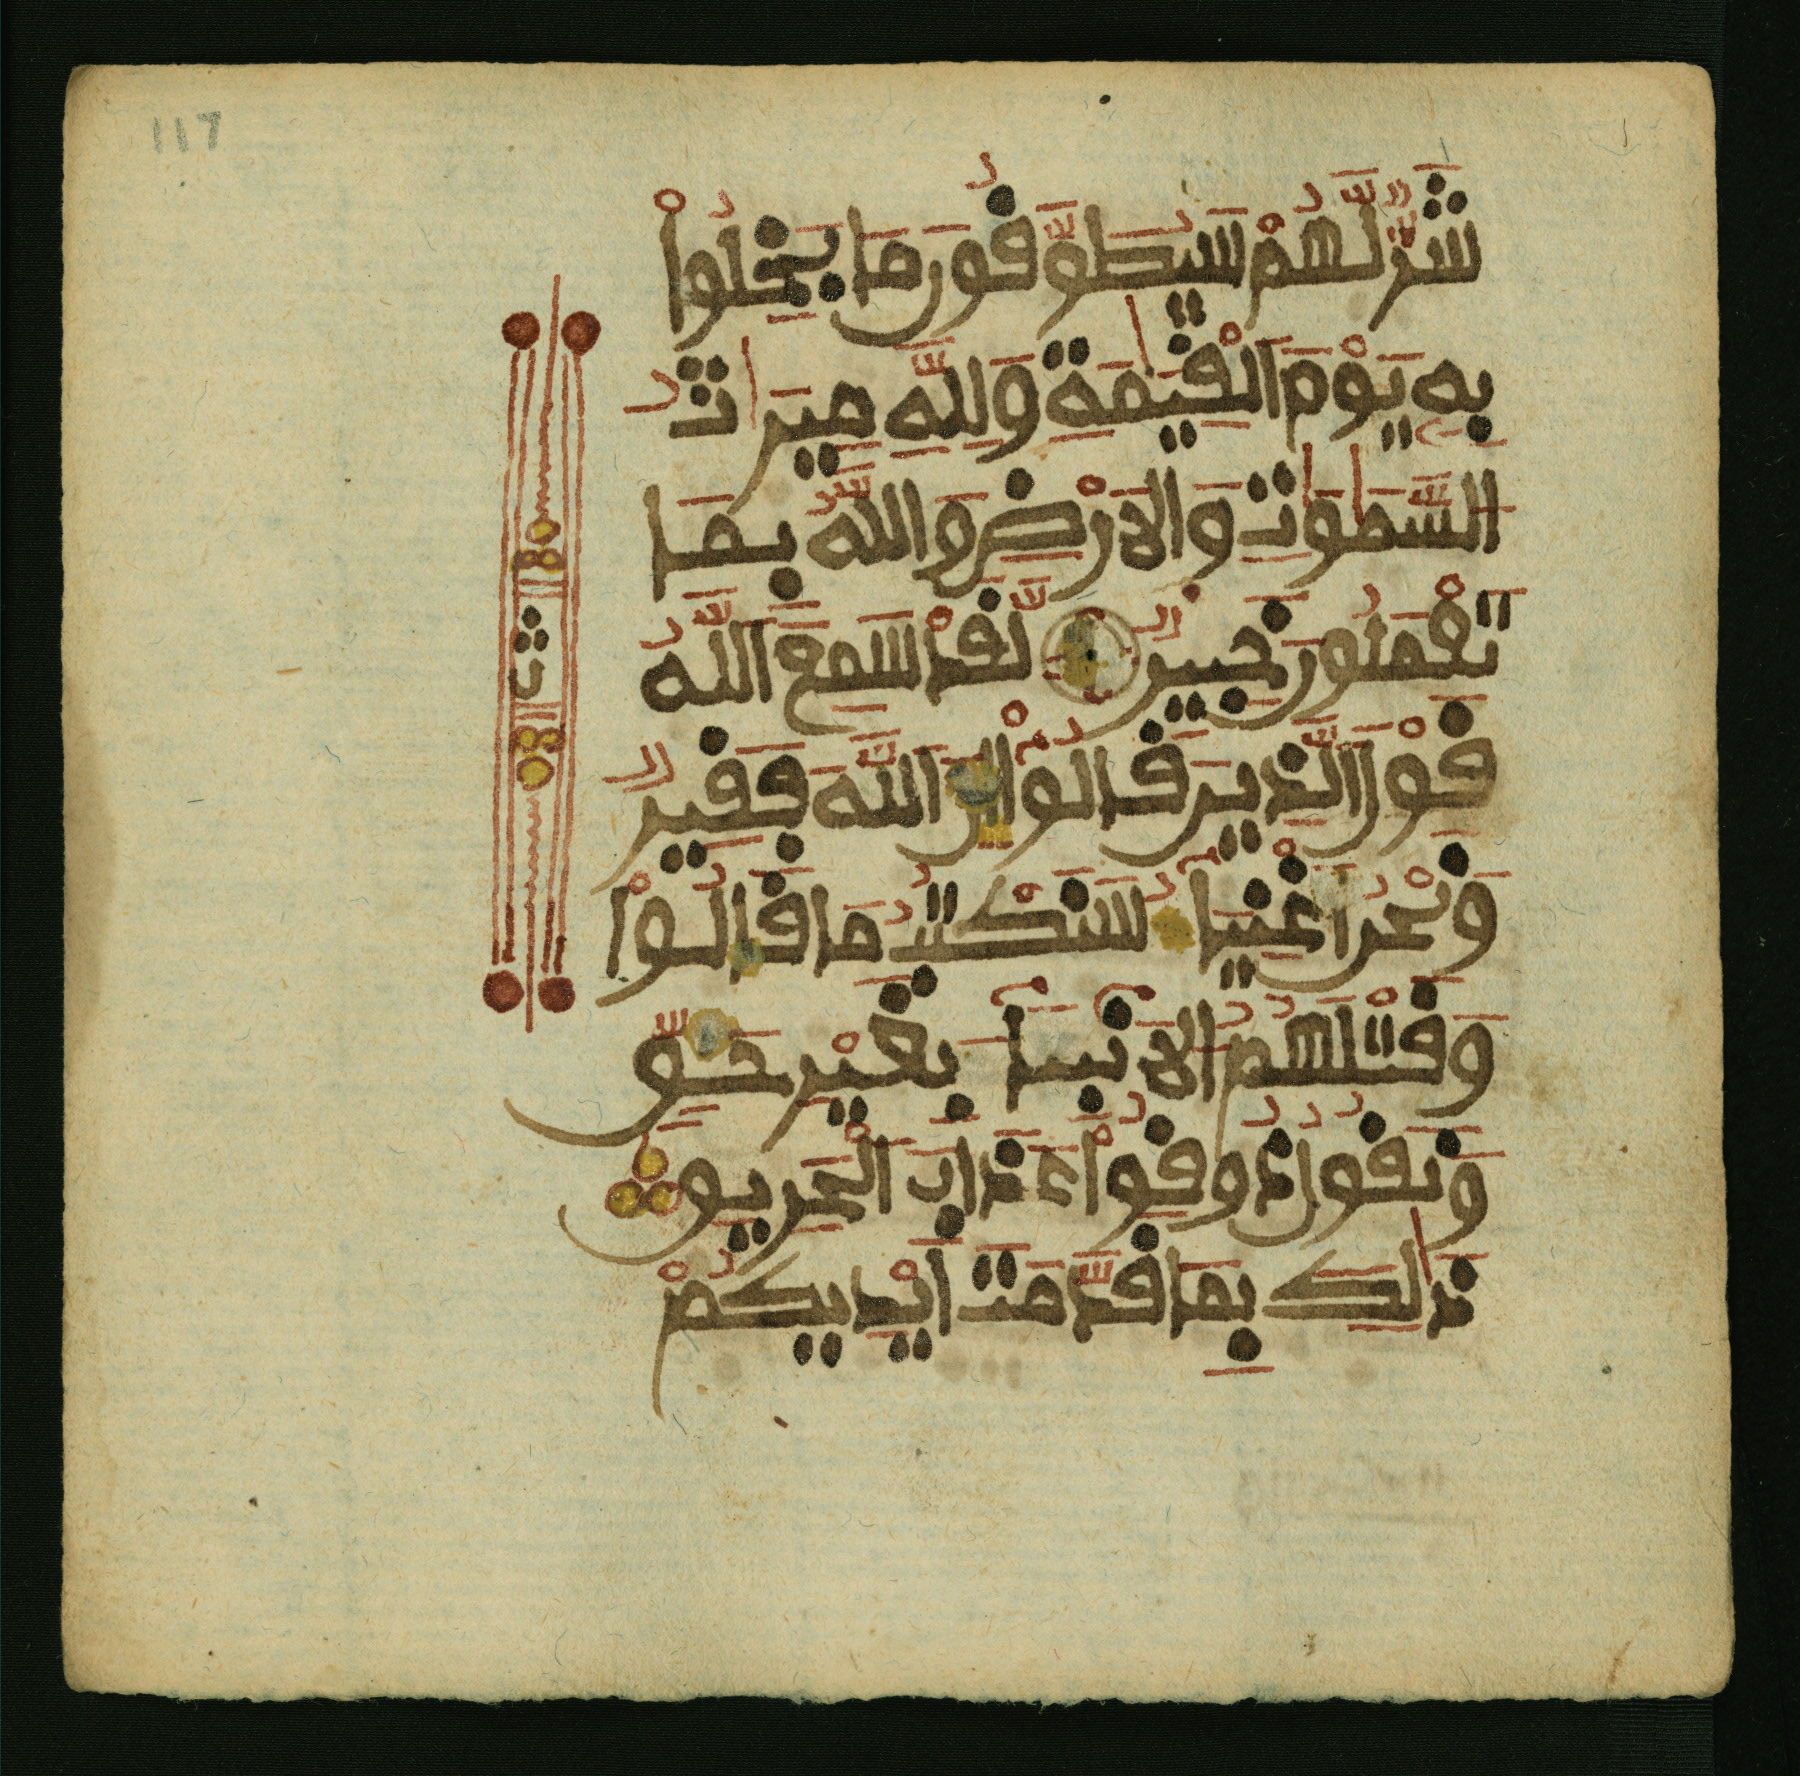 117
شَرٌّ لَّهُمْ سَيُطَوَّفُونَ مَا بَخِلُواْ
بِهِ يَوْمَ اَلْقِيَٰمَةِ وَلِلَّهِ مِيرَٰثُ
اُلسَّمَٰوَٰتِ وَالَارْضِ وَاللَّهُ بِمَا
تَعْمَلُونَ خَبِيرٌ لَّقَدْ سَمِعَ اَللَّهُ
قَوْلَ اَلذِينَ قَالُواْ إِنَّ اَللَّهَ فَقِيرٌ
وَنَحْنُ أَغْنِيَاءُ سَنَكْتُبُ مَا قَالُواْ
وَقَتْلَهُمُ اُلَانۢبِئَاءَ بِغَيْرِ حَقٍّ
وَنَقُولُ ذُوقُواْ عَذَابَ اَلْحَرِيقِ
ذَٰلِكَ بِمَا قَدَّمَتَ اَيْدِيكُمْ
ث